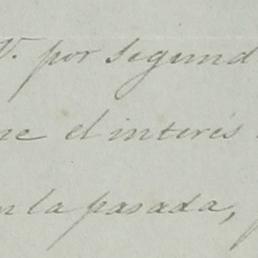 V. por segund
ne el interés
n la pasada,